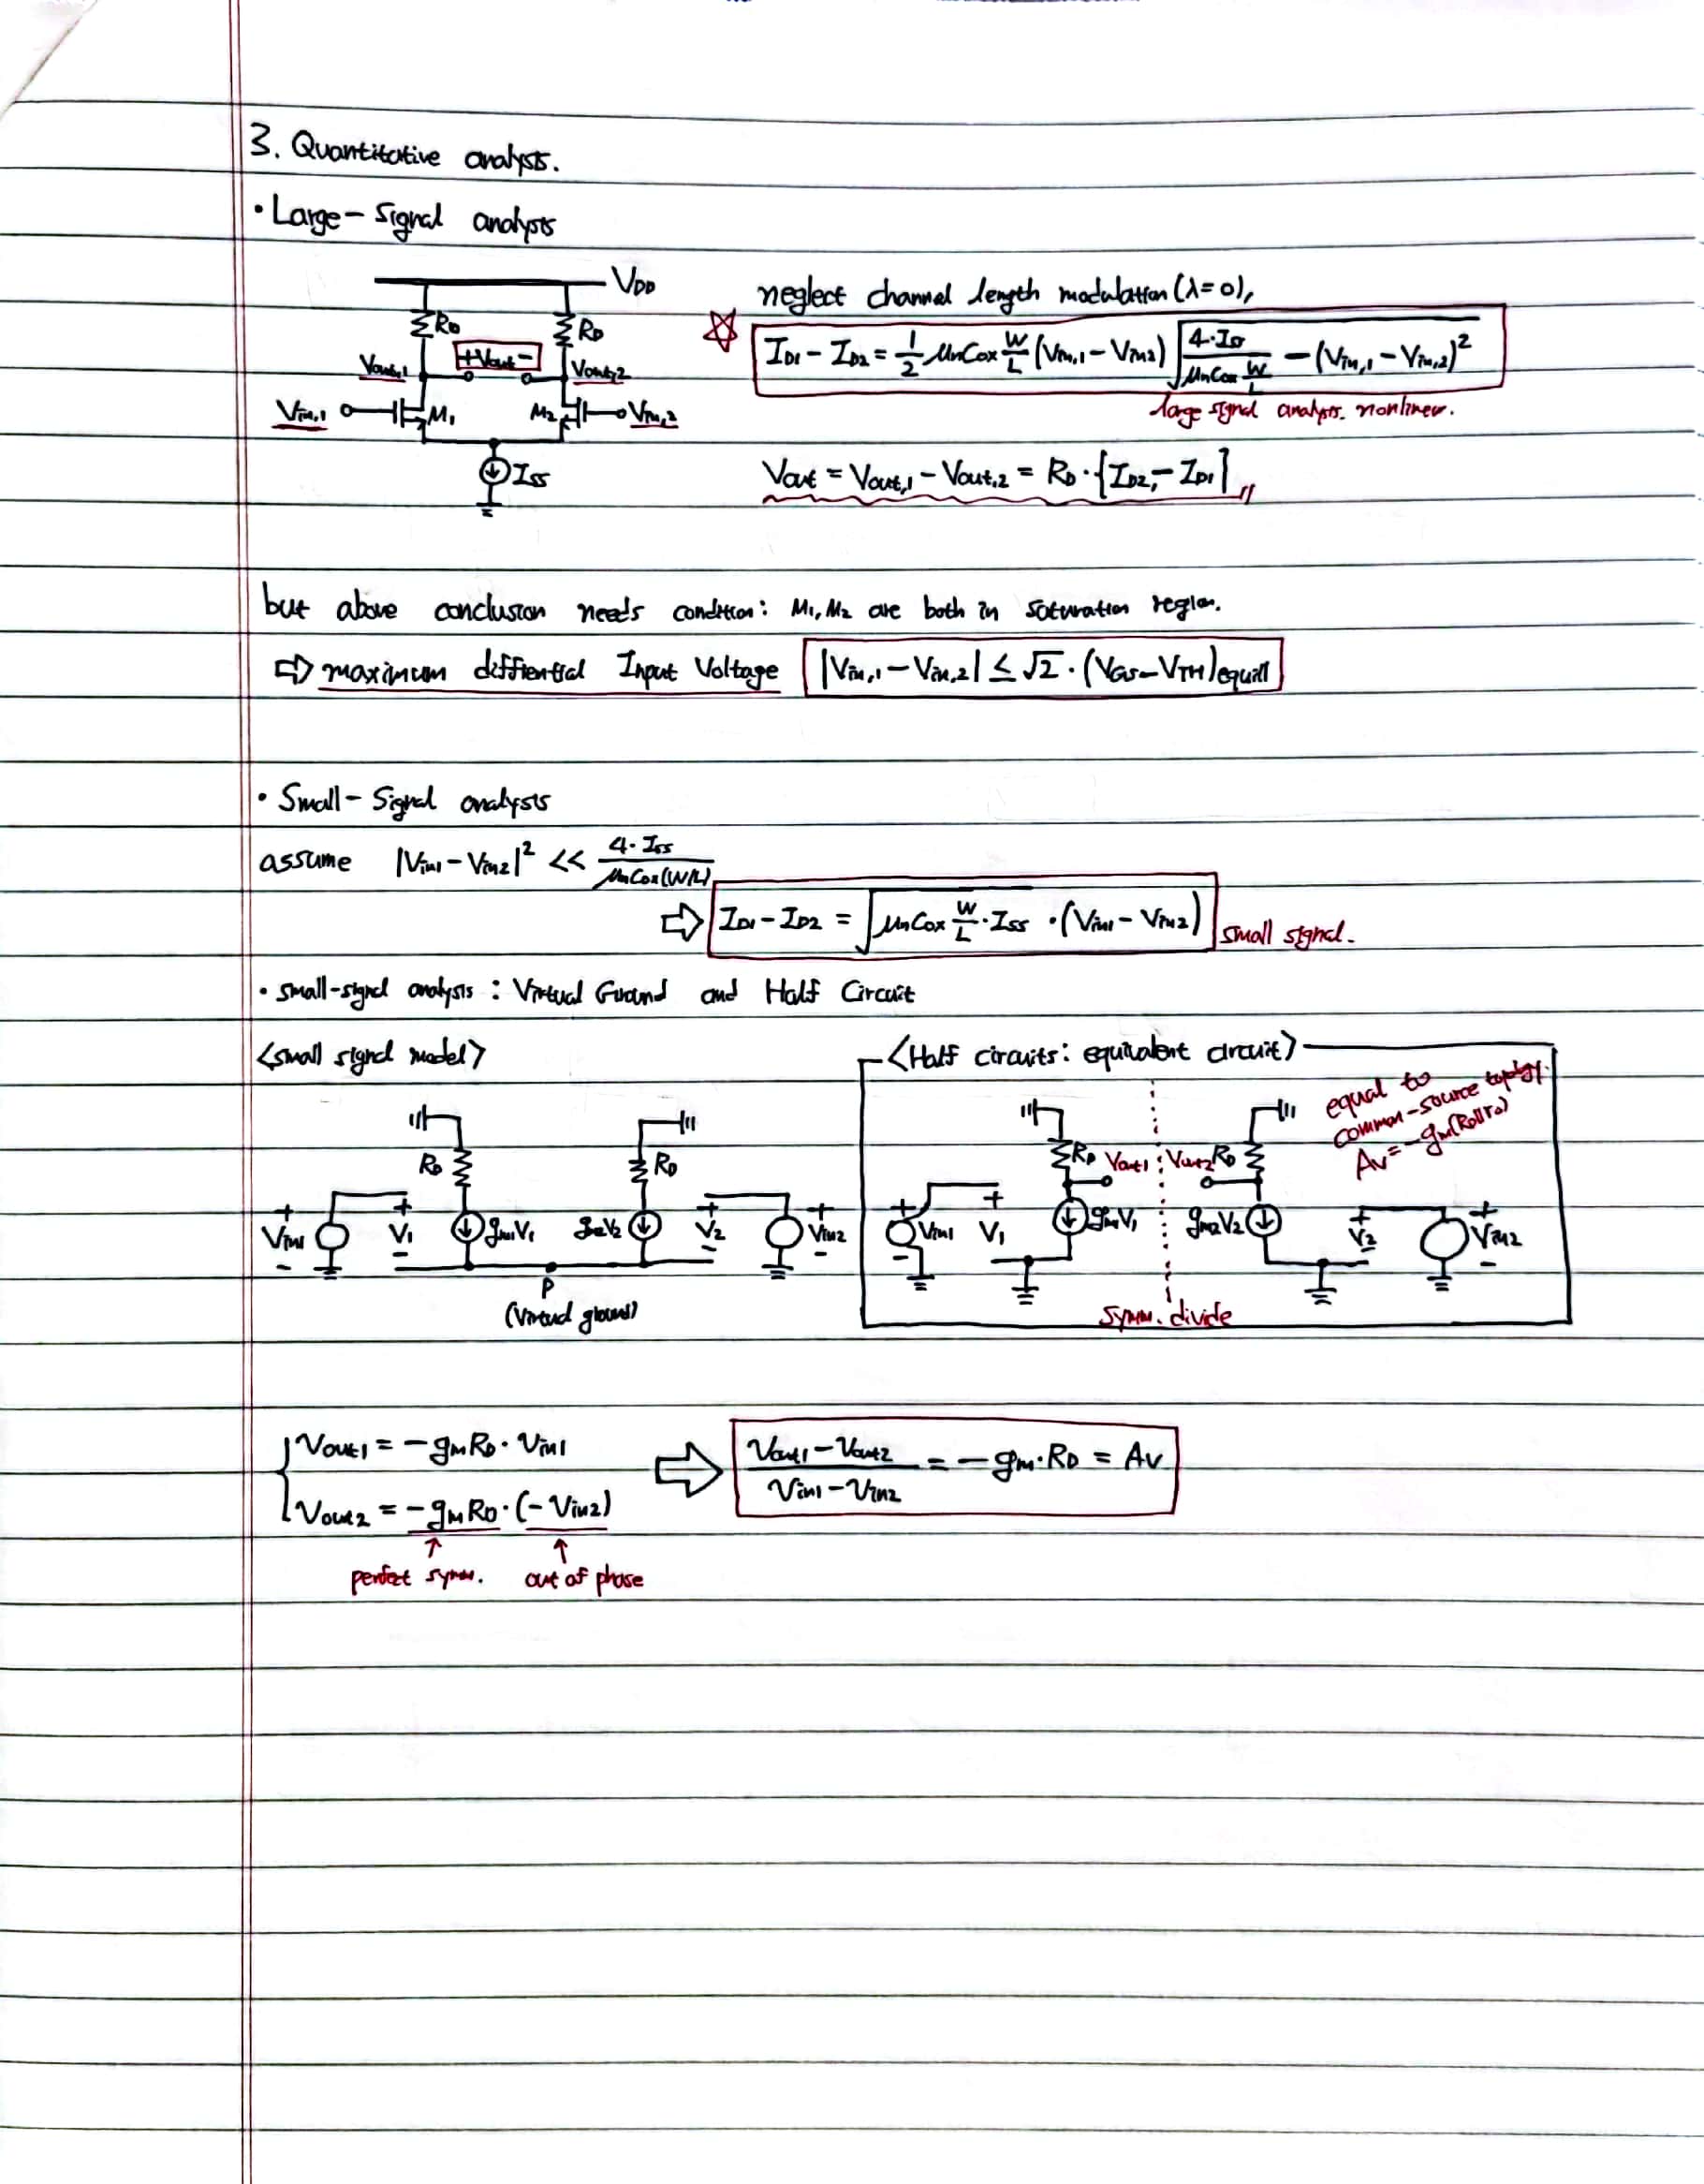 3. Quantitative analysis.
• Large-Signal analysis
VDD
RD RD
Vout,1 +Vout- Vout,2
Vin,1 M1 M2 Vin,2
ISS
neglect channel length modulation (λ=0),
☆ ID1 - ID2 = 1/2 μnCox W/L (Vin,1 - Vin2) √(4·ISS/(μnCox W/L) - (Vin,1 - Vin,2)²)
large signal analysis. nonlinear.
Vout = Vout,1 - Vout,2 = RD·{ID2 - ID1}
but above conclusion needs condition: M1, M2 are both in saturation region.
⇨ maximum diffiential Input Voltage |Vin,1 - Vin,2| ≤ √2·(VGS-VTH)equill
• Small-Signal analysis
assume |Vin1 - Vin2|² << 4·ISS/(μnCox(W/L))
⇨ ID1 - ID2 = √(μnCox W/L·ISS) ·(Vin1 - Vin2) small signal.
• small-signal analysis : Virtual Ground and Half Circuit
<small signal model>
RD RD
+ Vin1 - + V1 - gm1V1 gm2V2 + V2 - + Vin2 -
P
(Virtual ground)
<Half circuits: equivalent circuit>
equal to
common-source topology.
Av = -gm(RD||ro)
RD Vout1 Vout2 RD
+ Vin1 - + V1 - gm1V1 gm2V2 + V2 - + Vin2 -
symm. divide
Vout1 = -gmRD·Vin1
Vout2 = -gmRD·(-Vin2)
⇨ (Vout1 - Vout2)/(Vin1 - Vin2) = -gm·RD = Av
↑ ↑
perfect symm. out of phase